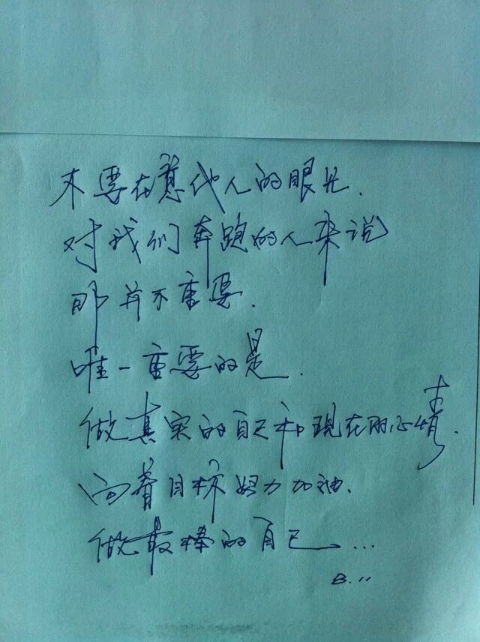 不要在意他人的眼光.
对我们奔跑的人来说
那并不重要.
唯一重要的是.
做真实的自己和现在的心情.
向着目标努力加油.
做最棒的自己...
B...